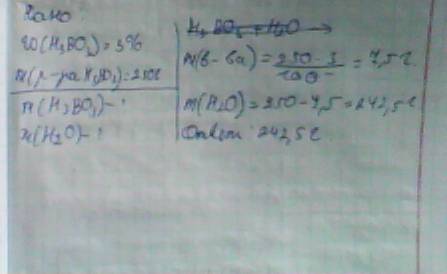 Дано
W(H₃BO₃) = 3%
m(р-ра H₃BO₃) = 250г
m(H₃BO₃) - ?
m(H₂O) - ?
H₃BO₃ + H₂O →
m(в-ва) = 250 · 3 / 100 = 7,5 г.
m(H₂O) = 250 - 7,5 = 242,5 г
Ответ: 242,5 г